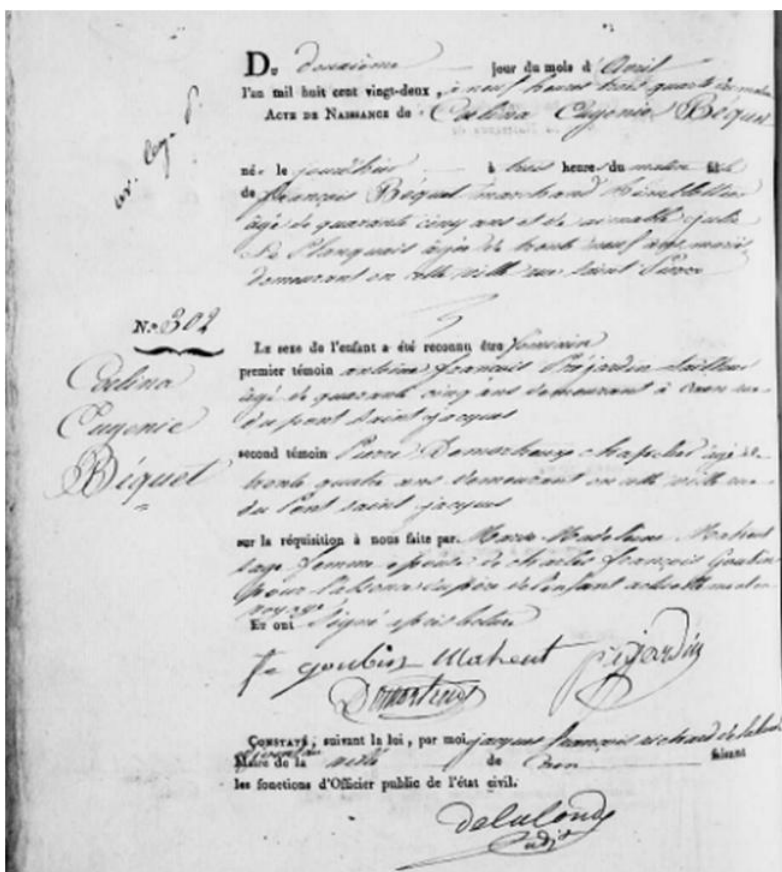 Du douzième jour du mois d'Avril
l'an mil huit cent vingt-deux, à neuf heures trois quarts du matin
ACTE DE NAISSANCE de Evelina Eugenie Béquet
né le jour d'hier à trois heures du matin
de françois Bequet marchand
âgé de quarante cinq ans et de aimable julie
âgée de trente neuf ans mariés
demeurant en cette ville rue Saint Pierre
No. 302
Evelina
Eugenie
Béquet
Le sexe de l'enfant a été reconnu être féminin
premier témoin antoine françois Préjardin tailleur
âgé de quarante cinq ans demeurant à Caen rue
du pont saint jacques
second témoin Pierre chapelier âgé de
trente quatre ans demeurant en cette ville rue
du Pont saint jacques
sur la réquisition à nous faite par Marie Madeleine Maheut
sage femme épouse de charles françois Goubin
pour l'absence du père de l'enfant actuellement en
voyage
Et ont signé après lecture
fe goubin Maheut préjardin
CONSTATÉ, suivant la loi, par moi jacques françois
Maire de la ville de Caen faisant
les fonctions d'Officier public de l'état civil.
delalonde
adjt